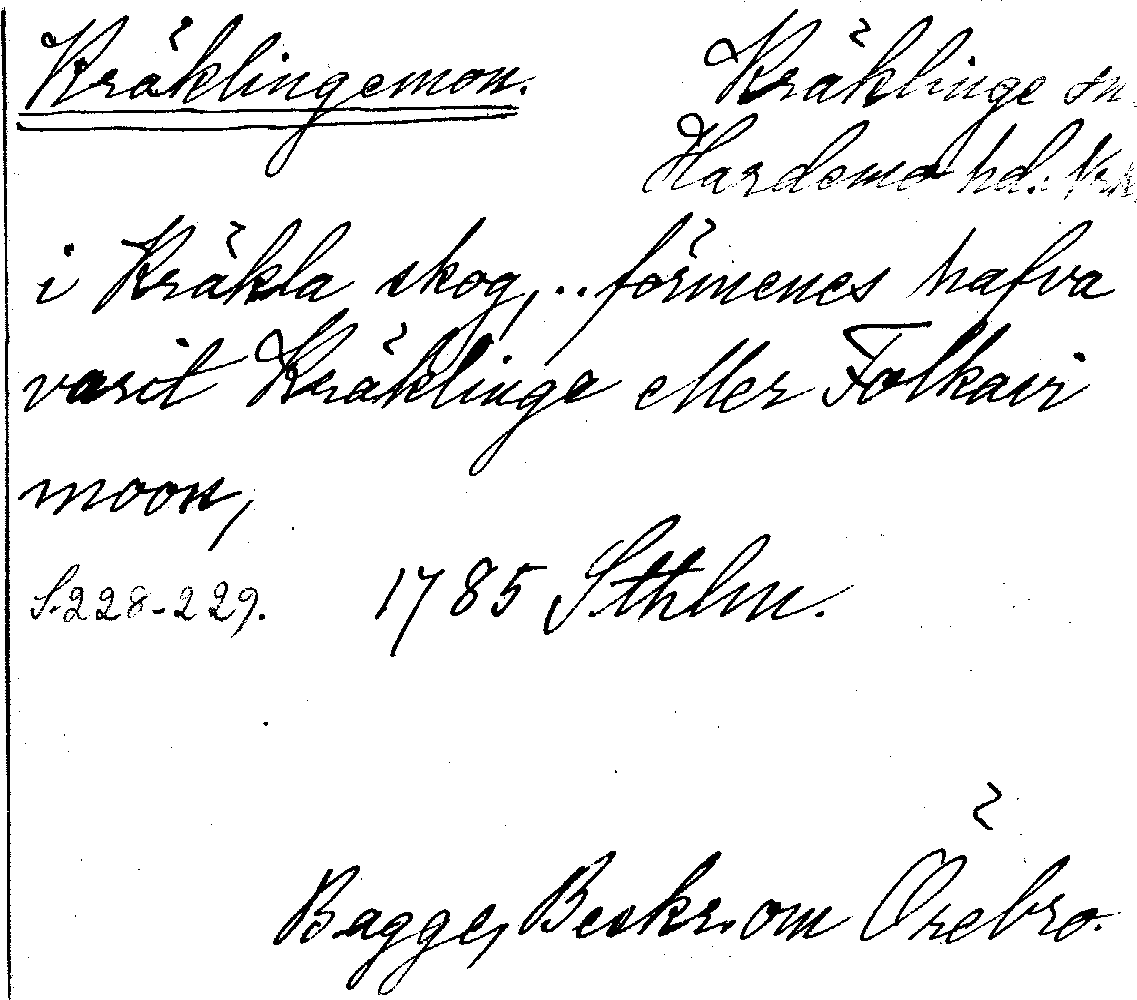 Kräklingemon. Kräklinge sn.
Hardemo hd.
i Kräkla skog,.. förmenes hafva
varit Kräklinge eller Folkavi
moon,
S. 228-229. 1785 Sthlm.
Bagge, Beskr. om Örebro.